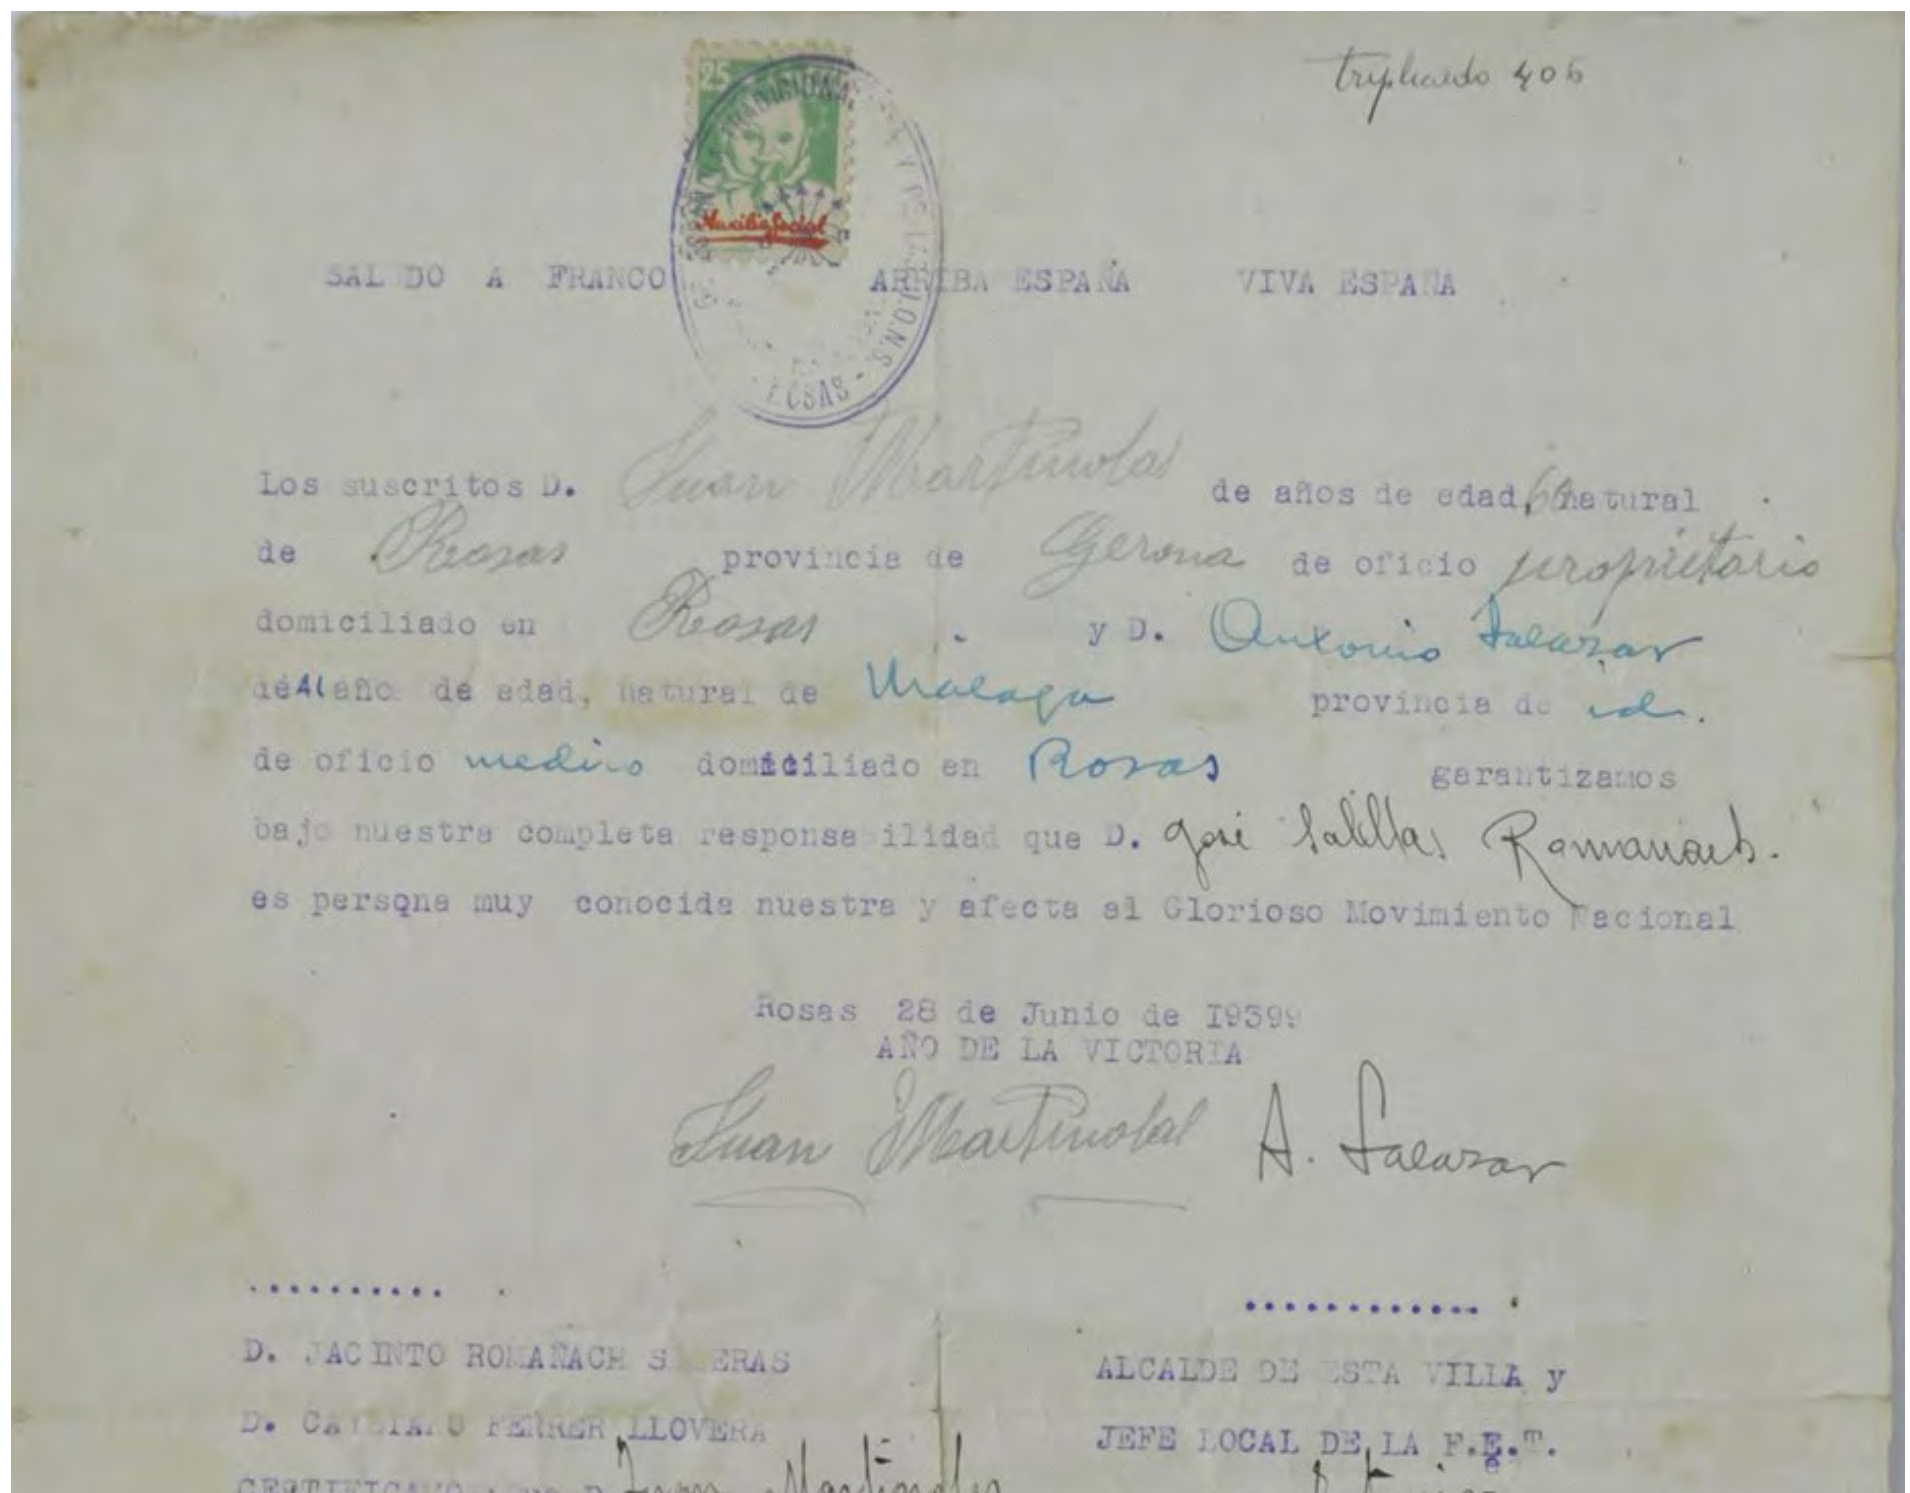 triplicado 406
25
Auxilio Social
ROSAS
SALUDO A FRANCO ARRIBA ESPAÑA VIVA ESPAÑA
Los suscritos D. Juan de años de edad, natural
de Rosas provincia de Gerona de oficio propietario
domiciliado en Rosas y D. Antonio Salazar
de 41 años de edad, natural de Málaga provincia de id.
de oficio medico domiciliado en Rosas garantizamos
bajo nuestra completa responsabilidad que D. José Salellas Romanach.
es persona muy conocida nuestra y afecta al Glorioso Movimiento Nacional
Rosas 28 de Junio de I9399
AÑO DE LA VICTORIA
Juan A. Salazar
D. JACINTO ROMAÑACH
ALCALDE DE ESTA VILLA y
D. CAYETANO FERRER LLOVERA
JEFE LOCAL DE LA F.E.T.
CERTIFICAMOS que D. Juan